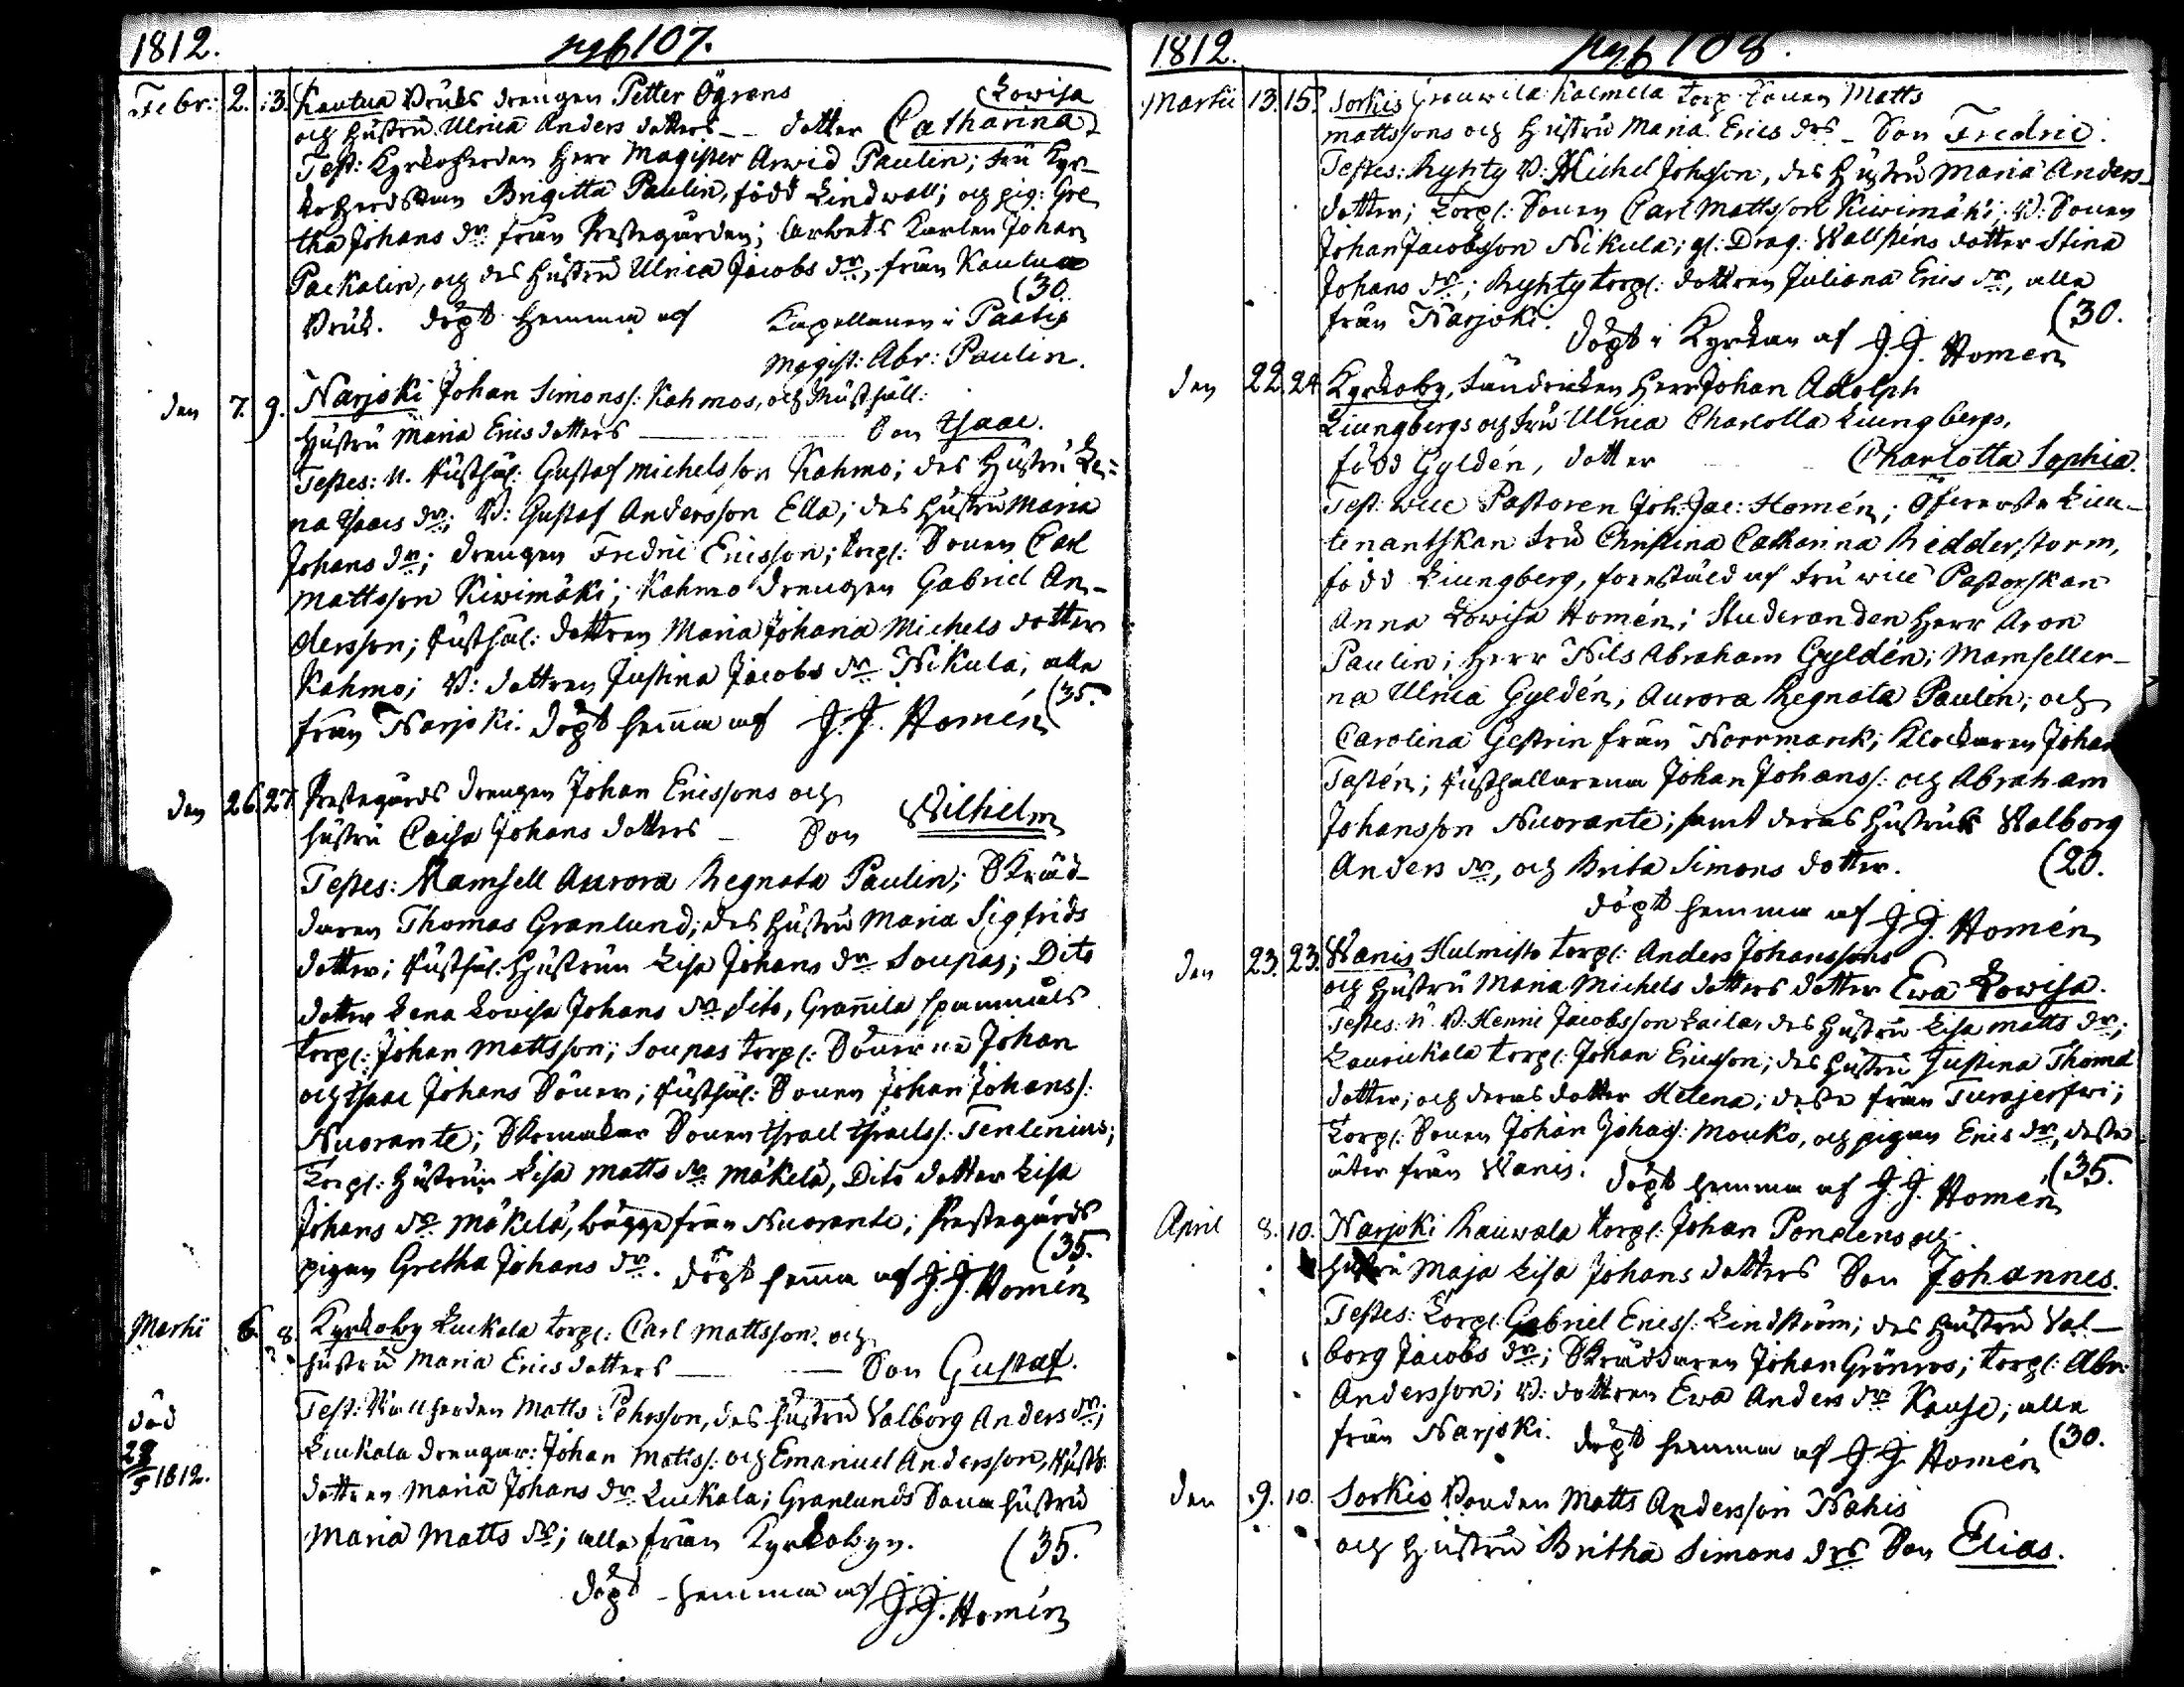 1812. pag 107.
Febr: 2. 3. Kautua Bruks drengen Petter Ögrens Lovisa
och hustru Ulrica Anders dotters — dotter Catharina
Test: Kyrkoherden Herr Magister Arwid Paulin; fru Kyr-
koherdskan Brigitta Paulin, född Lindwall; och pig: Gre
tha Johans dr från Prestegården; Arbets Karlen Johan
Packalin, och des hustru Ulrica Jacobs dr, från Kautua
Bruk. döpt hemma af Kapellanen i (30.
Magist: Abr: Paulin.
den 7. 9. Narjoki Johan Simonss: Kahmos, och
hustru Maria Erics dotters — Son Isaac.
Testes: N. Rusthål: Gustaf Michelsson Kahmo; des hustru Le-
na Isacs dr; B: Gustaf Andersson Ella; des hustru Maria
Johans dr; drengen Fredric Ericsson; torp: Sonen Carl
Mattsson Kiwimäki; Kahmo drengen Gabriel An-
dersson; Rusthål: dottren Maria Johana Michels dotter
Kahmo; B: dottren Justina Jacobs dr Nikula, alla
från Narjoki. döpt hema af J.J. Homén (35.
den 26. 27 Prestegårds drengen Johan Ericssons och
hustru Caisa Johans dotters — Son Wilhelm
Testes: Mamsell Aurora Regnata Paulin; Skräd-
daren Thomas Granlund; des hustru Maria Sigfrids
dotter; Rusthål: hustrun Lisa Johans dr Soupas; Dito
dotter Lena Lovisa Johans dr dito, Granila
torp: Johan Mattsson; Soupas torp: Sönerne Johan
och Isaac Johans Söner; Rusthål: Sonen Johan Johanss:
Nuorante; Skomakar Sonen Israel Israelss: Tenlenius;
Torp: hustrun Lisa Matts dr Mäkelä, Dito dotter Lisa
Johans dr Mäkelä, bägge från Nuorante; Prestegårds
pigan Gretha Johans dr. döpt hema af J.J. Homén (35.
Martii 6. 8. Kyrkoby Luckala torp: Carl Mattsson och
hustru Maria Erics dotters — Son Gustaf.
Test: Matts Pehrsson, des hustru Valborg Anders dr;
Luckala drengar: Johan Matss: och Emanuel Andersson, Rusth:
död
28/5 1812.
dottren Maria Johans dr Luckala; Granlunds Sona hustru
Maria Matts dr; alla från Kyrkobyn. (35.
döpt hemma af J.J. Homén
1812. pag 108.
Martii 13. 15. Sorkis Grouwila Kalmela torp: Sonen Matts
Mattssons och hustru Maria Erics drs — Son Fredric.
Testes: Ryhty B: Michel Johsson, des hustru Maria Anders-
dotter; torp: Sonen Carl Mattsson Kiwimäki; B: Sonen
Johan Jacobsson Nikula; gl: Drag: Wallstens dotter Stina
Johans dr; Ryhty torp: dottren Juliana Erics dr, alla
från Narjoki. döpt i Kyrkan af J.J. Homén (30.
den 22. 24 Kyrkoby, Fendricken Herr Johan Adolph
Liungbergs och fru Ulrica Charlotta Liungbergs,
född Gyldén, dotter Charlotta Sophia.
Test: Vice Pastoren Joh: Jac: Homén; Öfwerste Lieu-
tenantskan fru Christina Catharina Ridderstorm,
född Liungberg, förestäld af fru vice Pastorskan
Anna Lovisa Homén; Studeranden Herr Aron
Paulin; Herr Nils Abraham Gyldén; Mamseller-
na Ulrica Gyldén, Aurora Regnata Paulin; och
Carolina Gestrin från Norrmarck; Klockaren Johan
Tastén; Rusthållarena Johan Johanss: och Abraham
Johansson Nuorante; samt deras hustrur Walborg
Anders dr, och Brita Simons dotter. (20.
döpt hemma af J.J. Homén
den 23. 23. Wanis Hulmisto torp: Anders Johanssons
och hustru Maria Michels dotters dotter Ewa Lovisa.
Testes: N. B. Henric Jacobsson Laila, des hustru Lisa Matts dr;
Laurickala torp: Johan Ericsson; des hustru Justina Thoma
dotter; och deras dotter Helena; desse från Turajerfwi;
Torp: Sonen Johan Johass: Mouko, och pigan Erics dr, desse
åter från Wanis. döpt hemma af J.J. Homén (35.
April 8. 10. Narjoki Rauwala torp: Johan Pondens och
hustru Maja Lisa Johans dotters Son Johannes.
Testes: Torp: Gabriel Ericss: Lindström; des hustru Val-
borg Jacobs dr; Skräddaren Johan Grönros; torp: Abr:
Andersson; B: dottren Ewa Anders dr Knuse; alla
från Narjoki. döpt hemma af J.J. Homén (30.
den 9. 10. Sorkis Bonden Matts Andersson Nahis
och hustru Britha Simons drs Son Elias.